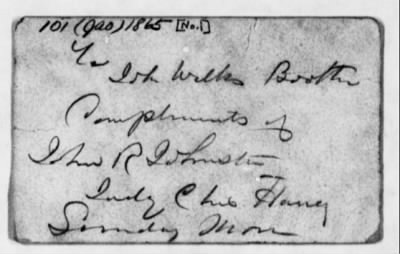 101 (Jao) 1865 [No.1]
To
Joh Wilks Booth
Compliments of
John R Johnston
Judy Chs
Sunday Morn